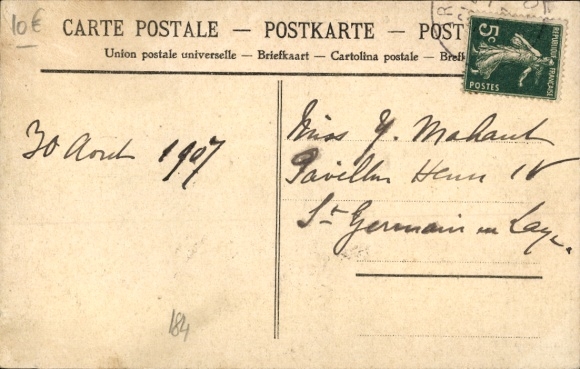 10€
CARTE POSTALE — POSTKARTE — POST
Union postale universelle — Briefkaart — Cartolina postale — Brefk
5c
REPUBLIQUE FRANÇAISE
POSTES
30 Aout 1907
Miss Y. Mahaut
Pavillon Henri IV
St Germain en Laye.
184